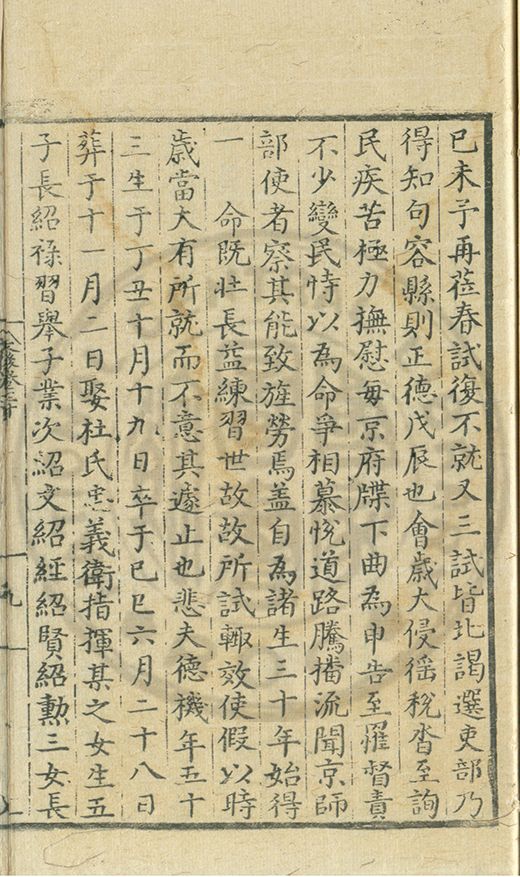 已未予再蒞春試復不就又三試皆北謁選吏部乃
得知句容縣則正德戊辰也會歲大侵徭稅沓至詢
民疾苦極力撫慰每京府牒下曲為申告至罹督責
不少變民恃以為命爭相慕悅道路騰播流聞京師
部使者察其能致旌勞焉蓋自為諸生三十年始得
一命既壯長益練習世故故所試輙效使假以時
歲當大有所就而不意其遽止也悲夫德機年五十
三生于丁丑十月十九日卒于巳巳六月二十八日
葬于十一月二日娶杜氏忠義衛指揮某之女生五
子長紹祿習舉子業次紹文紹經紹賢紹勳三女長